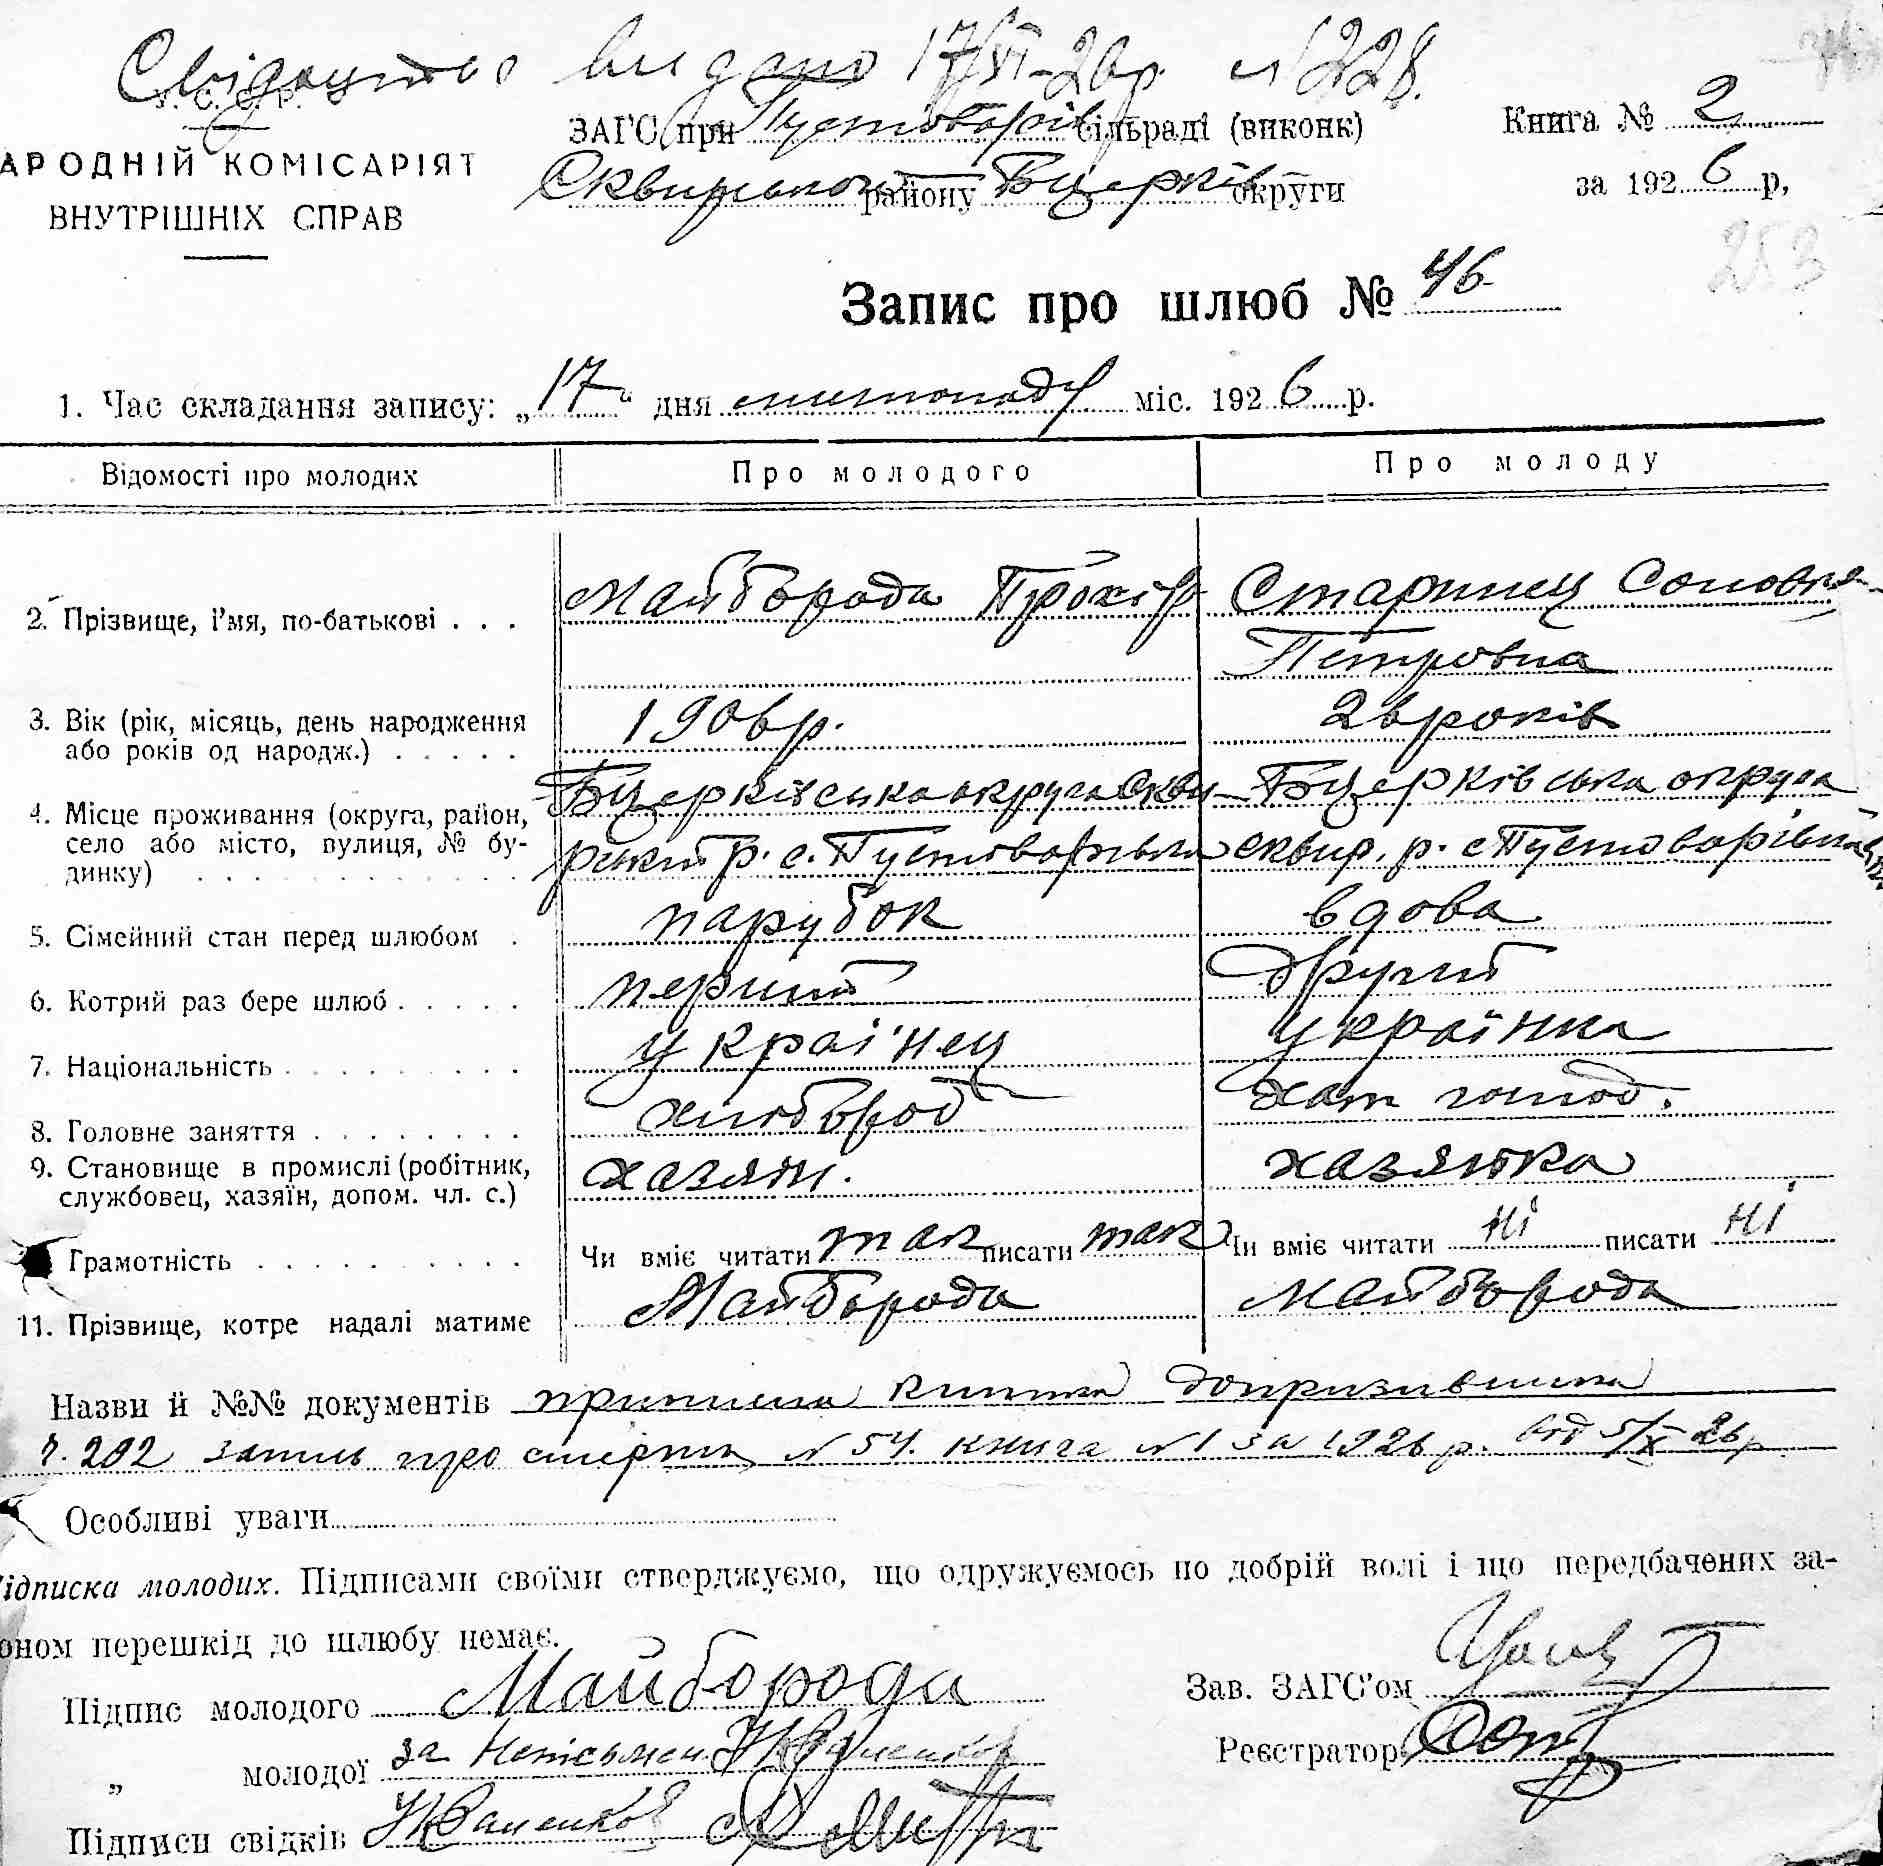 Свідоцтво видано 17/XI-26р. N 228.
У. С. Р. Р.
ЗАГС при Пустоварів сільраді (виконк)
Книга № 2
АРОДНІЙ КОМІСАРІЯТ
Сквирського району Бцерків округи
за 1926 р,
ВНУТРІШНІХ СПРАВ
253
Запис про шлюб № 46
1. Час складання запису: „17" дня листопаду міс. 1926 р.
Відомості про молодих Про молодого Про молоду
2. Прізвище, і'мя, по-батькові . . . Майборода Прохір Старинец Соловка
Петровна
3. Вік (рік, місяць, день народження 1906р. 26 років
або років од народж.) . . . . .
Бцерківська округа Скви- Бцерківська округа
4. Місце проживання (округа, район,
село або місто, вулиця, № бу- рський р. с. Пустоварівка сквир. р. с Пустоварівка
динку) . . . . . . . . . . . .
5. Сімейний стан перед шлюбом . парубок вдова
6. Котрий раз бере шлюб . . . . . перший другий
7. Національність . . . . . . . . . українец українка
8. Головне заняття . . . . . . . . хлібороб хат господ.
9. Становище в промислі (робітник, хазяїн. хазяйка
службовец, хазяїн, допом. чл. с.)
Грамотність . . . . . . . . . . Чи вміє читати так писати так Чи вміє читати ні писати ні
11. Прізвище, котре надалі матиме Майборода Майборода
Назви й №№ документів приписна книжка допризивника
ч. 202 запись про смерть N 54. книга N 1 за 1926 р. від 5/X 26р
Особливі уваги
ідписка молодих. Підписами своїми стверджуємо, що одружуємось по добрій волі і що передбачених за-
оном перешкід до шлюбу немає.
Підпис молодого Майборода
Зав. ЗАГС'ом
„ молодої за неписьмен.
Реєстратор
Підписи свідків